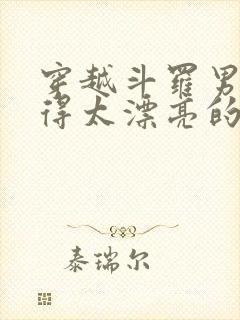 穿越斗罗男
得太漂亮的
泰瑞尔